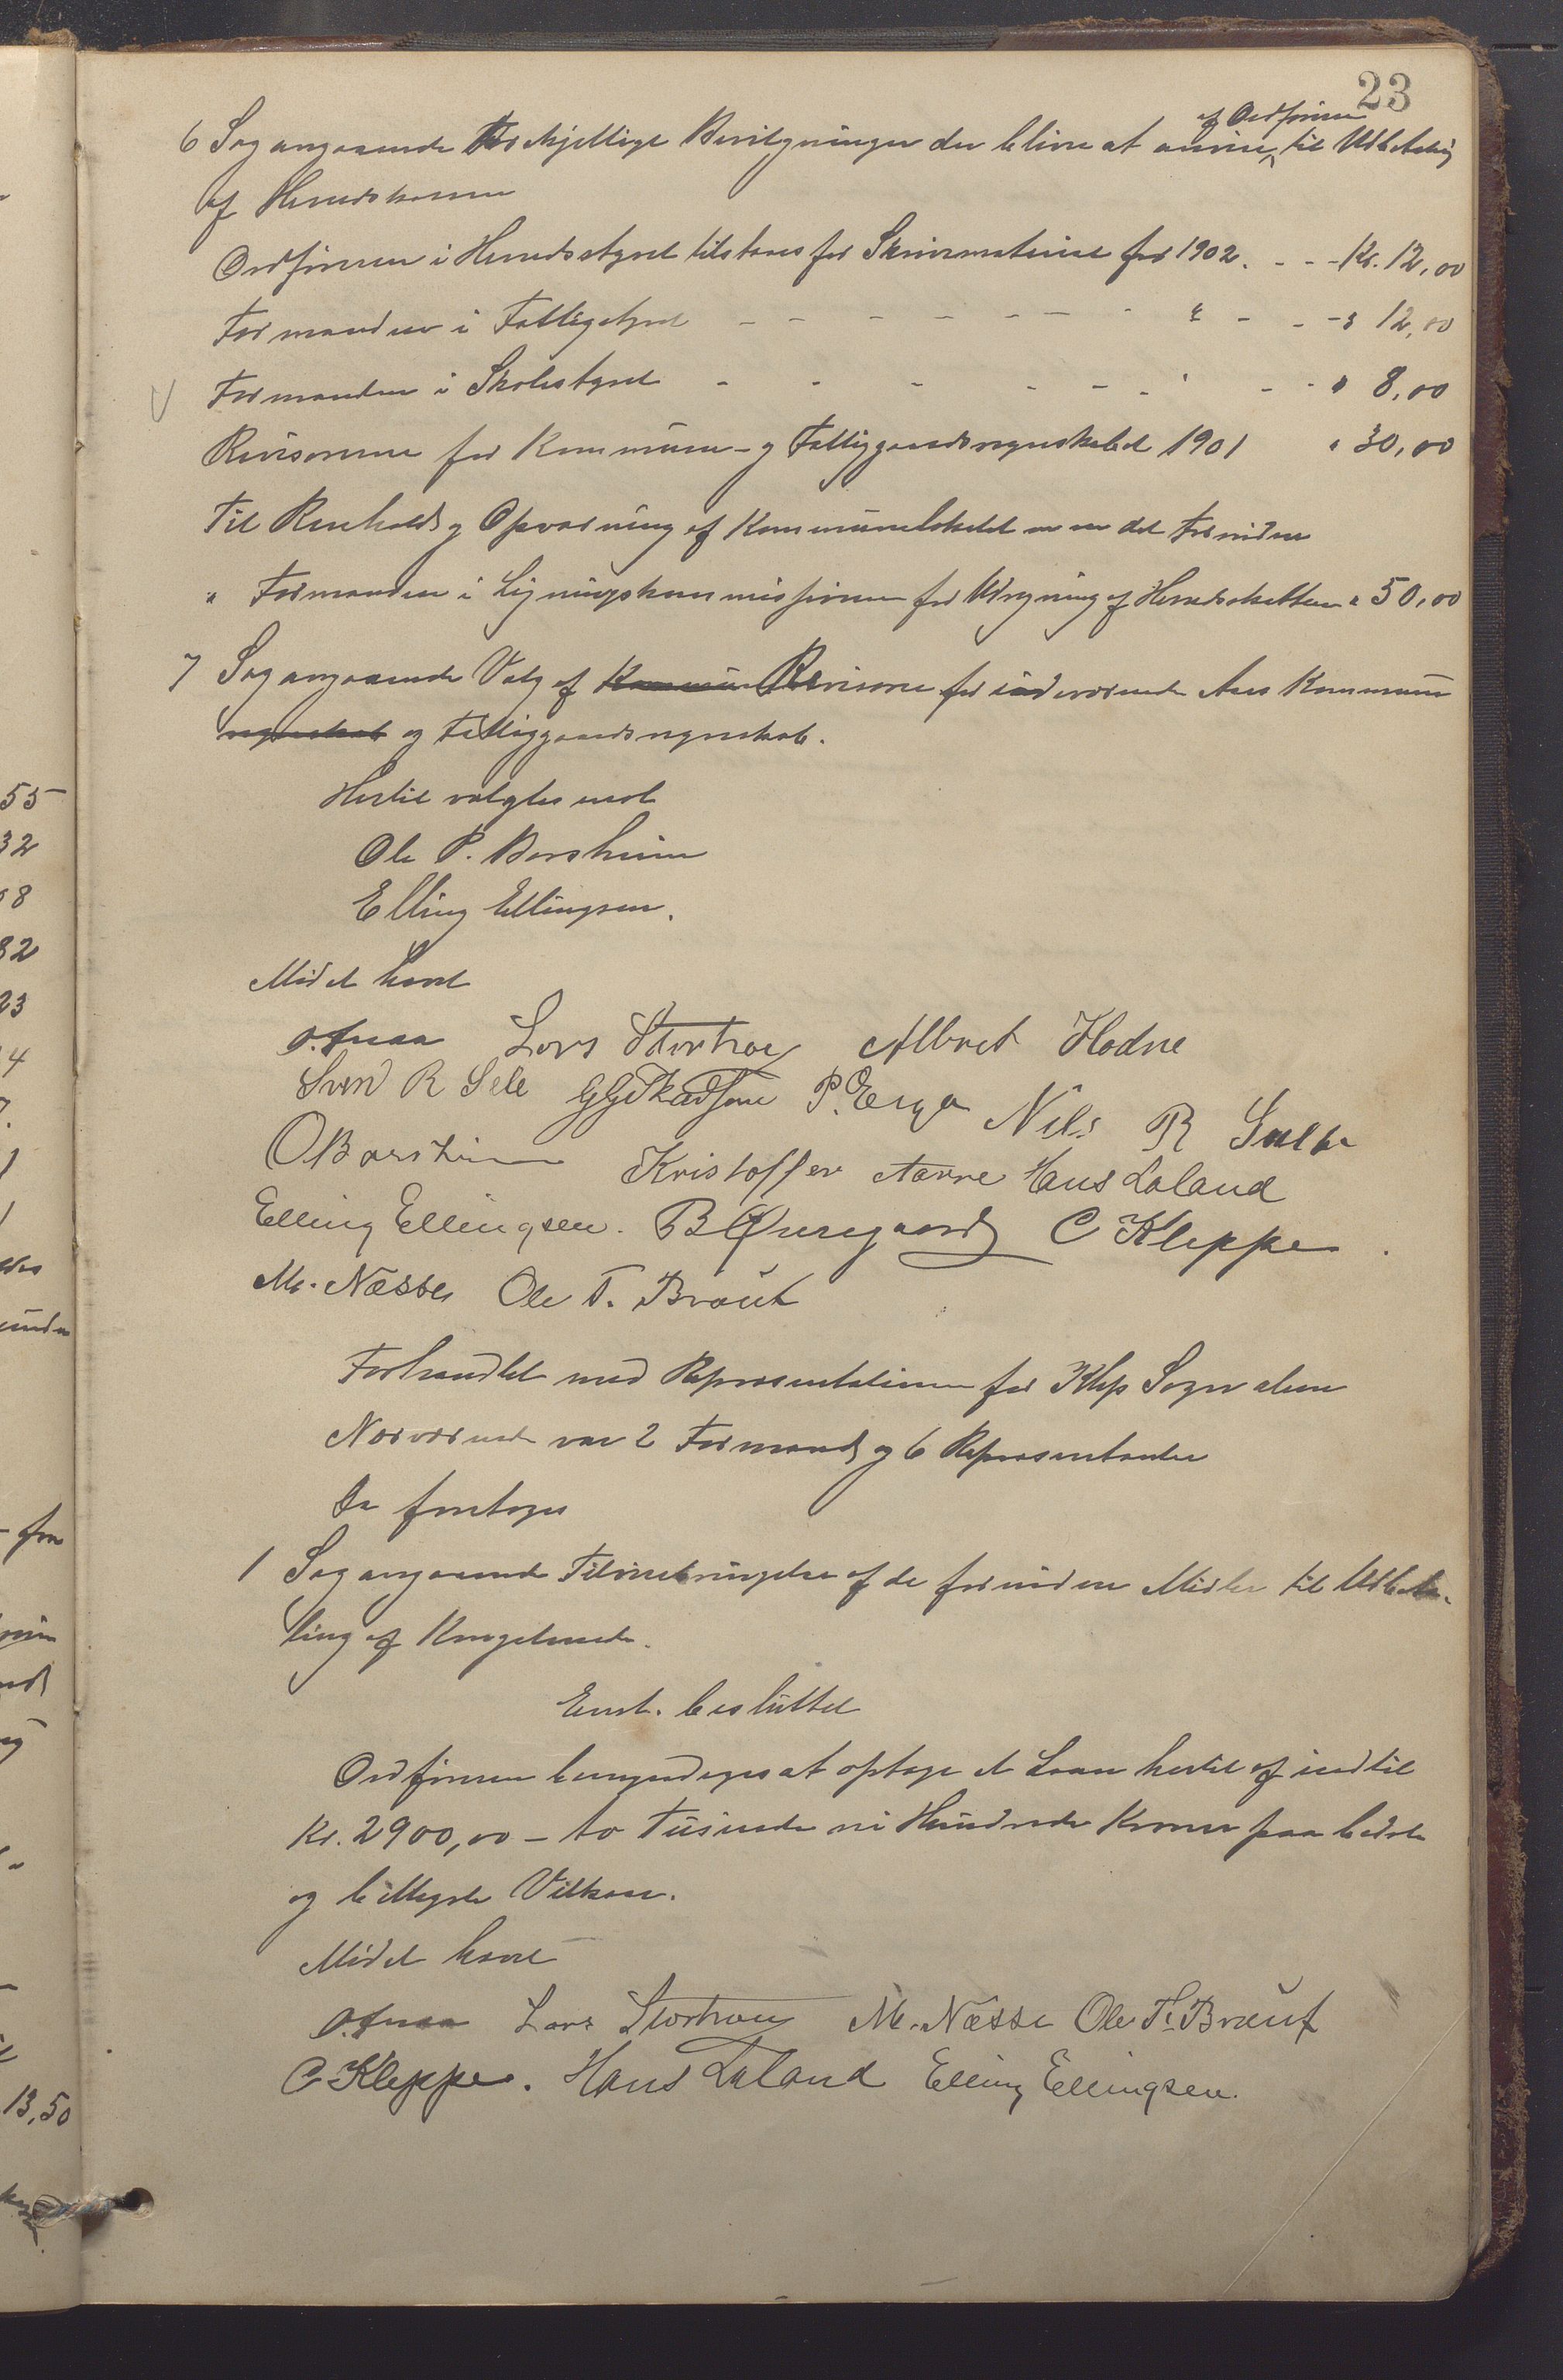 23
6 Sag angaaende Forskjellige Bevilgninger der bliver at anvise af Ordføreren til Udbetaling
af Herredskassen
Ordføreren i Herredsstyret tilstaaes for Skrivemateriel for 1902. - - - Kr. 12,00
Formanden i Fattigstyret - - - - - - - - " - - - " 12,00
Formanden i Skolestyret - - - - - - - - - " 8,00
Revisorerne for Kommune- og Fattiggaardsregnskabet 1901 " 30,00
Til Renhold og Opvarming af Kommunelokalet m m det Fornødne
" Formanden i Ligningskommissionen for Udregning af Herredsskatten " 50,00
7 Sag angaaende Valg af Kommune Revisorer for indeværende Aars Kommune
regnskab og Fattiggaardsregnskab.
Hertil valgtes med
Ole P. Borsheim
Elling Ellingsen.
Mødet hævet
O. Anaa Lars Storhaug Albret Hodne
Sven R Sele P. Erga Nils R Salte
O Borsheim Kristoffer Aarre Hans Laland
Elling Ellingsen. B Øuregaard C Kleppe.
M. Næsse Ole T. Braut
Forhandlet med Repræsentationen for Klep Sogn alene
Nærværende var 2 Formænd og 6 Repræsentanter
Da foretoges
1 Sag angaaende Tilveiebringelse af de fornødne Midler til Udbeta-
ling af Kongetiende.
Enst. besluttet
Ordføreren bemyndiges at optage et Laan hertil af indtil
Kr. 2900,00 - to Tusinde ni Hundrede Kroner paa bedste
og billigste Vilkaar.
Mødet hævet
O. Anaa Lars Storhaug M. Næsse Ole T. Braut
C Kleppe. Hans Laland Elling Ellingsen.
55
32
18
82
23
4
13,50